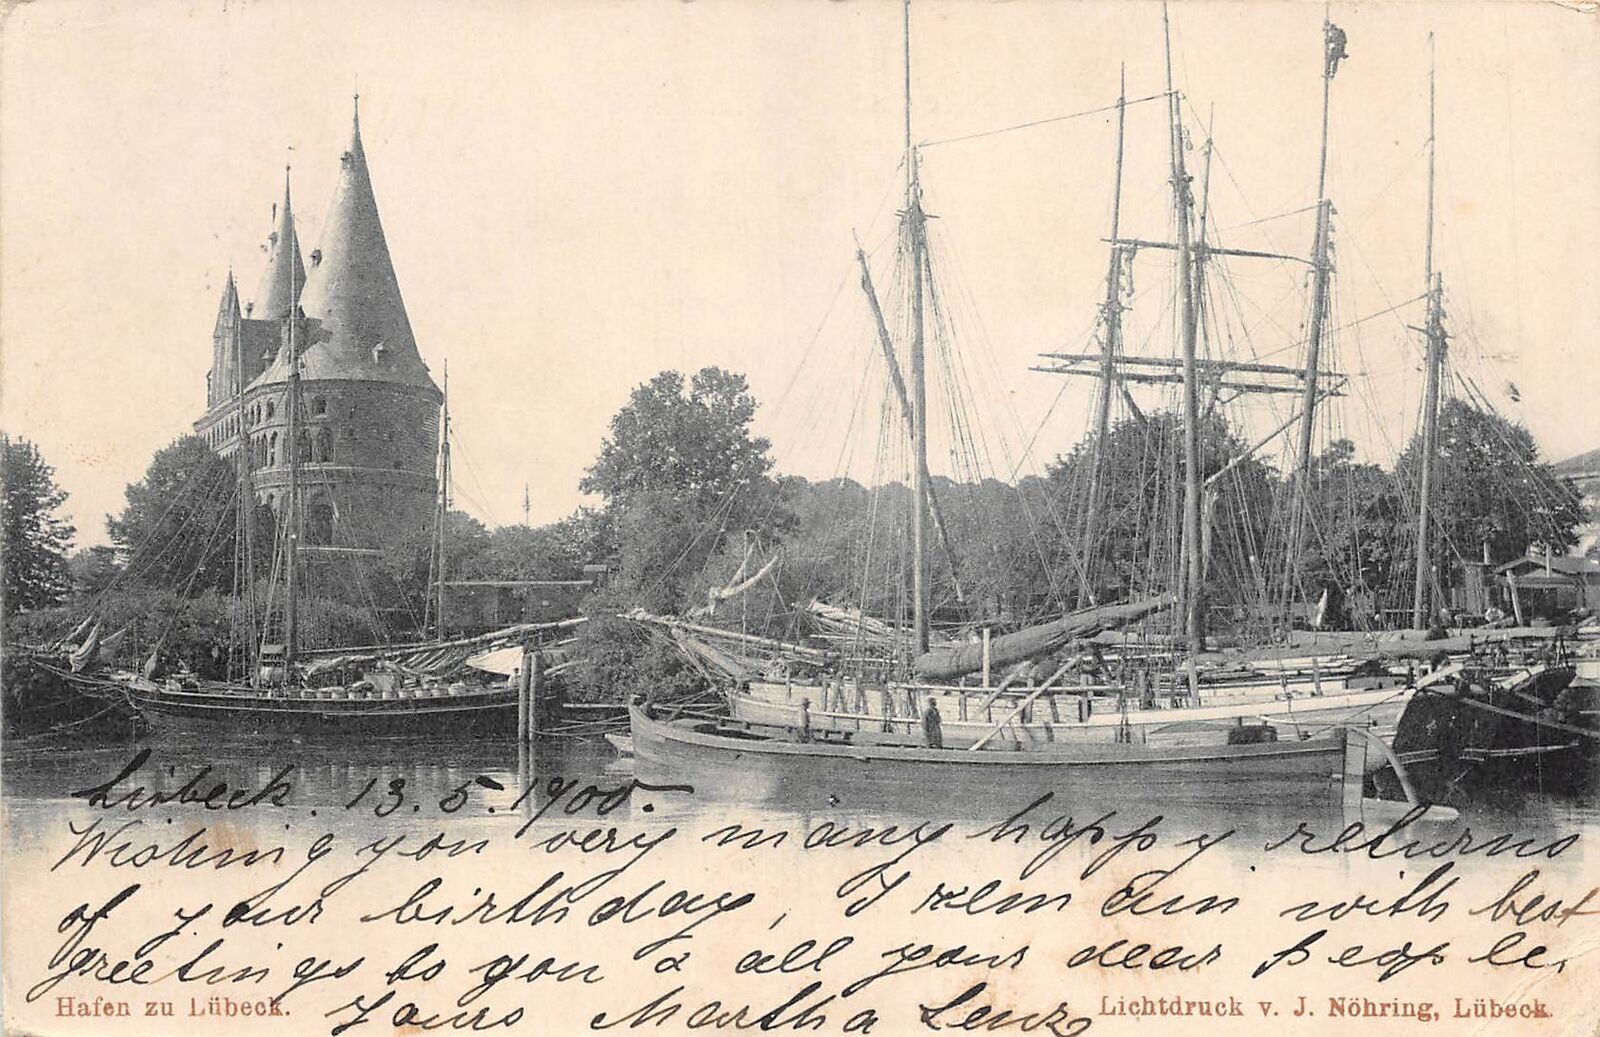 Lübeck. 13.5.1900.
Wishing you very many happy returns
of your birthday, I remain with best
greetings to you & all your dear People,
Yours Martha Lenz
Hafen zu Lübeck.
Lichtdruck v. J. Nöhring, Lübeck.